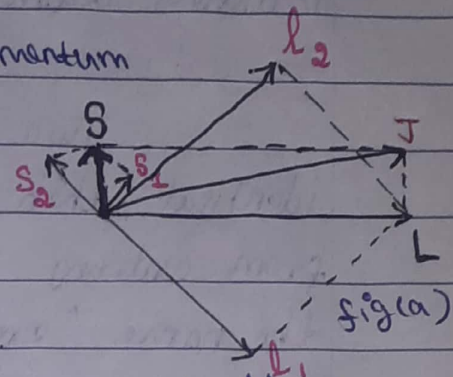 mentum
l2
S
J
S2
S1
L
fig(a)
l1